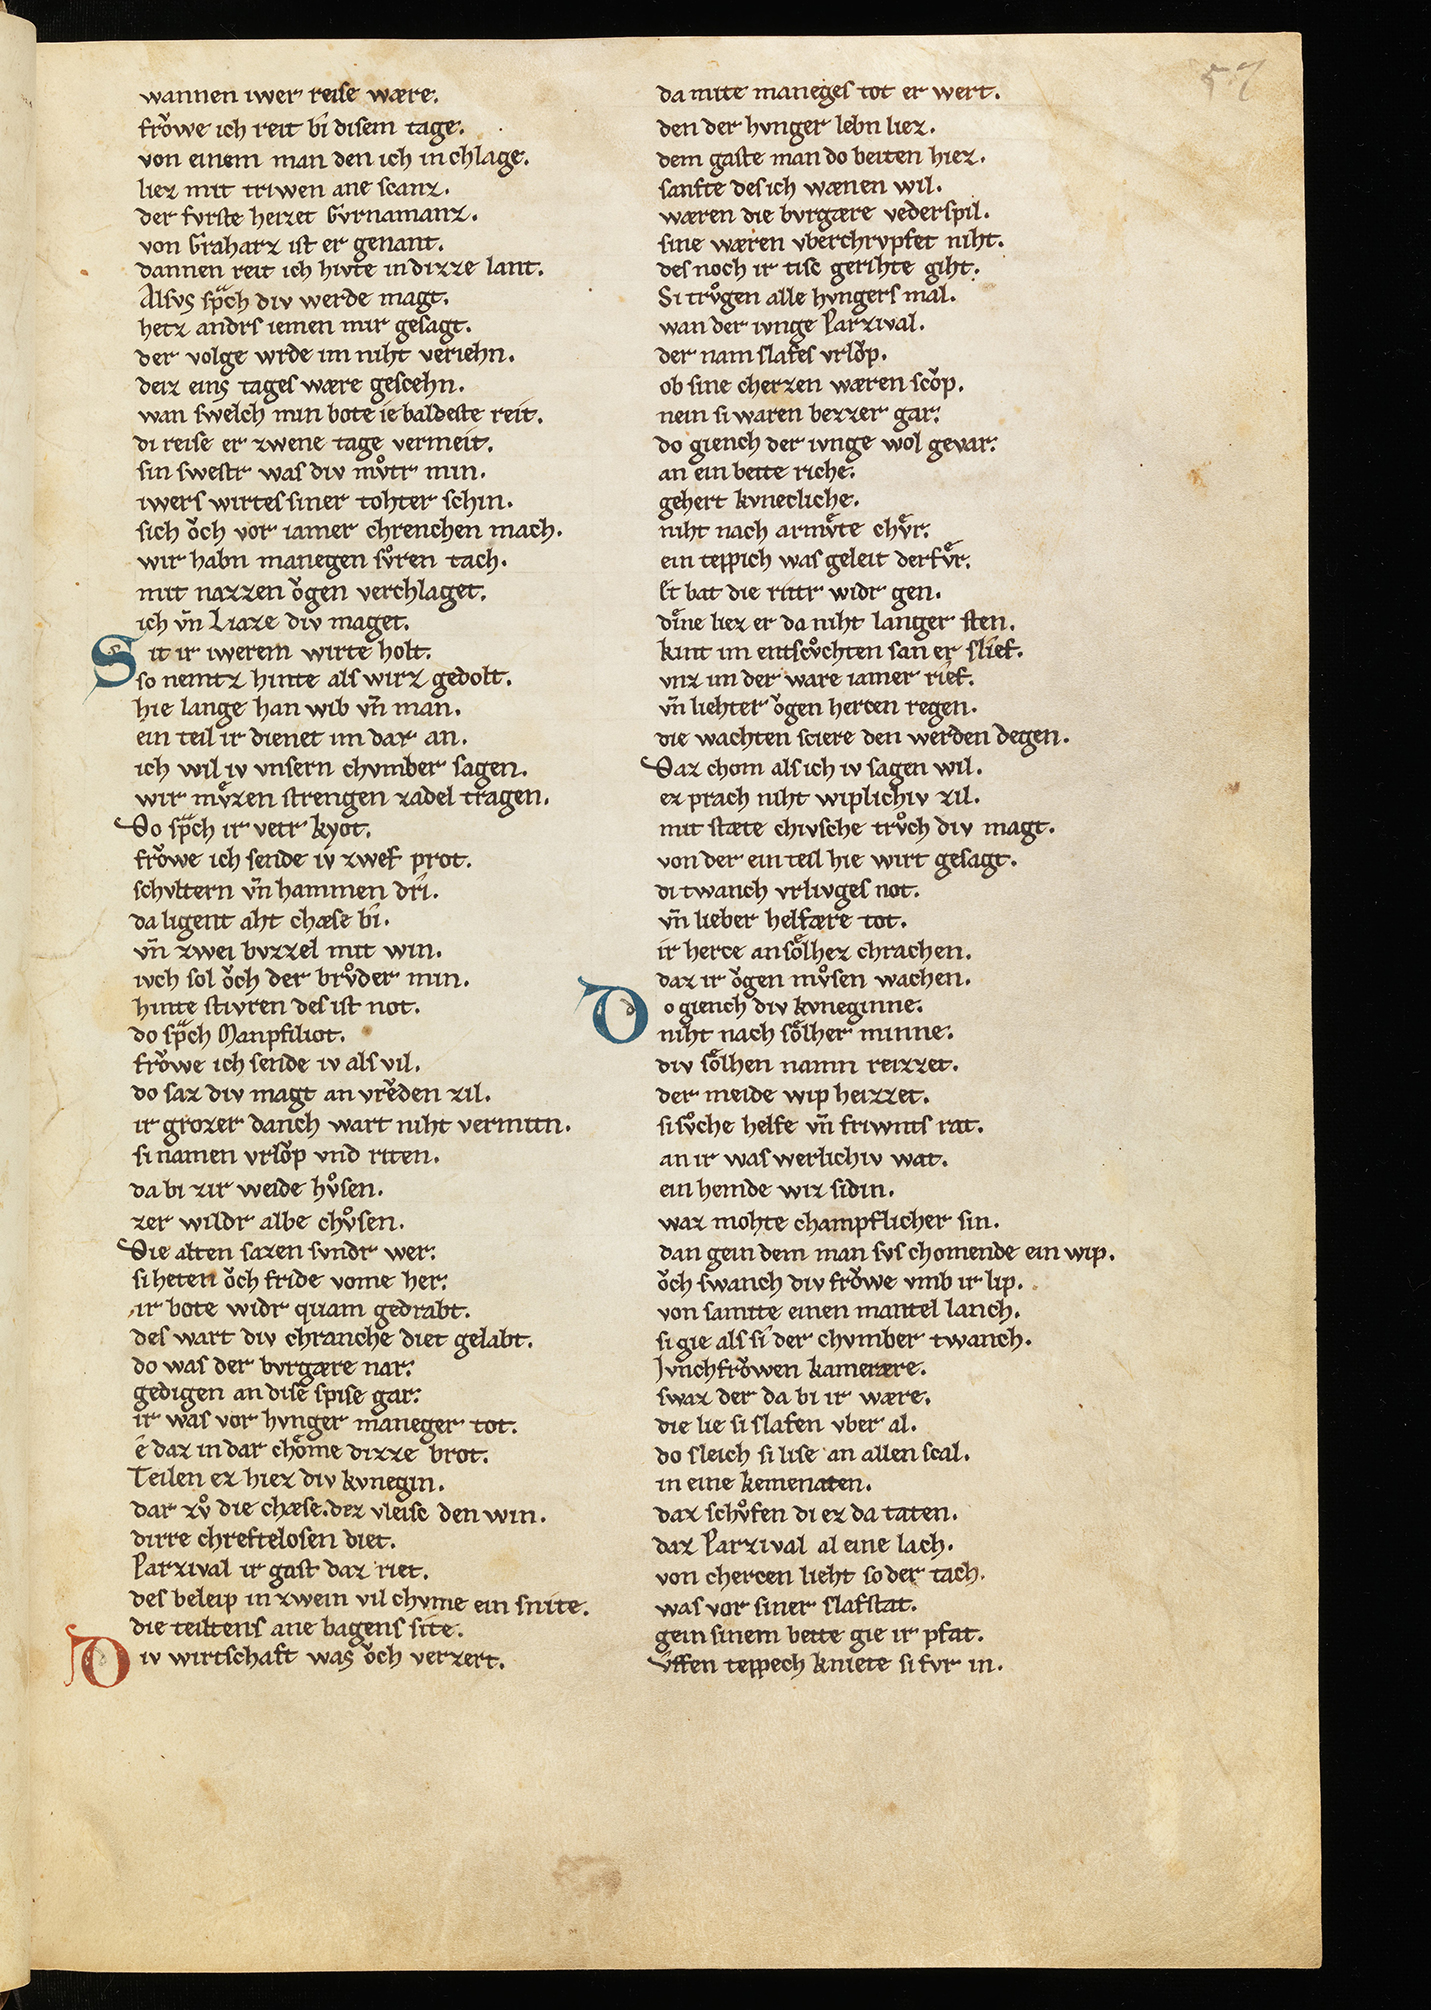 57
wannen iwer reise wære.
frǒwe ich reit bi disem tage.
von einem man den ich in chlage.
liez mit triwen ane scanz.
der fvrste heizet Gvrnamanz.
von Graharz ist er genant.
dannen reit ich hivte in dizze lant.
Alsvs sprͣch div werde magt.
hetz andrs iemen mir gesagt.
der volge wrde im niht veriehn.
deiz eins tages wære gescehn.
wan swelch min bote ie baldeste reit.
di reise er zwene tage vermeit.
sin swestr was div mvͦtr min.
iwers wirtes siner tohter schin.
sich ǒch vor iamer chrenchen mach.
wir habn manegen svͦren tach.
mit nazzen ǒgen verchlaget.
ich vn̄ Liaze div maget.
Sit ir iwerem wirte holt.
so nemtz hinte als wirz gedolt.
hie lange han wib vn̄ man.
ein teil ir dienet im dar an.
ich wil iv vnsern chvmber sagen.
wir mvͤzen strengen zadel tragen.
Do spͣch ir vetr kyot.
frǒwe ich sende iv zwelf prot.
schvltern vn̄ hammen dri.
da ligent aht chæse bi.
vn̄ zwei bvzzel mit win.
ivch sol ǒch der brvͦder min.
hinte stivren des ist not.
do spͣch Manpfiliot.
frǒwe ich sende iv als vil.
do saz div magt an vrěden zil.
ir grozer danch wart niht vermitn.
si namen vrlǒp vnd riten.
da bi zir weide hvͦsen.
zer wildr albe chlvͦsen.
Die alten sazen svndr wer.
si heten ǒch fride vome her.
ir bote widr quam gedrabt.
des wart div chranche diet gelabt.
do was der bvrgære nar.
gedigen an dise spise gar.
ir was vor hvnger maneger tot.
e daz in dar chͦme dizze brot.
Teilen ez hiez div kvnegin.
dar zvͦ die chæse. dez vleisc den win.
dirre chreftelosen diet.
Parzival ir gast daz riet.
des beleip in zwein vil chvme ein snite.
die teiltens ane bagens site.
Div wirtschaft was ǒch verzert.
da mite maneges tot er wert.
den der hvnger lebn liez.
dem gaste man do beiten hiez.
sanfte des ich wænen wil.
wæren die bvrgære vederspil.
sine wæren vberchrvpfet niht.
des noch ir tisc gerihte giht.
Si trvͦgen alle hvngers mal.
wan der ivnge Parzival.
der nam slafes vrlǒp.
ob sine cherzen wæren scǒp.
nein si waren bezzer gar.
do giench der ivnge wol gevar.
an ein bette riche.
gehert kvnecliche.
niht nach armvͤte chvͤr.
ein teppich was geleit derfvͤr.
Er bat die rittr widr gen.
dine liez er da niht langer sten.
kint im entscvͦchten san er slief.
vnz im der ware iamer rief.
vn̄ liehter ǒgen hercen regen.
die wachten sciere den werden degen.
Daz chom als ich iv sagen wil.
ez prach niht wiplichiv zil.
mit stæte chivsche trvͦch div magt.
von der ein teil hie wirt gesagt.
di twanch vrlivges not.
vn̄ lieber helfære tot.
ir herce an soͤlhez chrachen.
daz ir ǒgen mvͦsen wachen.
Do giench div kvneginne.
niht nach soͤlher minne.
div soͤlhen namn reizzet.
der meide wip heizzet.
si svͦche helfe vn̄ friwnts rat.
an ir was werlichiv wat.
ein hemde wiz sidin.
waz mohte champflicher sin.
dan gein dem man svs chomende ein wip.
ǒch swanch div frǒwe vmb ir lip.
von samtte einen mantel lanch.
si gie als si der chvmber twanch.
Jvnchfrǒwen kamerære.
swaz der da bi ir wære.
die lie si slafen vber al.
do sleich si lise an allen scal.
in eine kemenaten.
daz schvͦfen di ez da taten.
daz Parzival al eine lach.
von chercen lieht so der tach.
was vor siner slafstat.
gein sinem bette gie ir pfat.
vffen teppech kniete si fvr in.